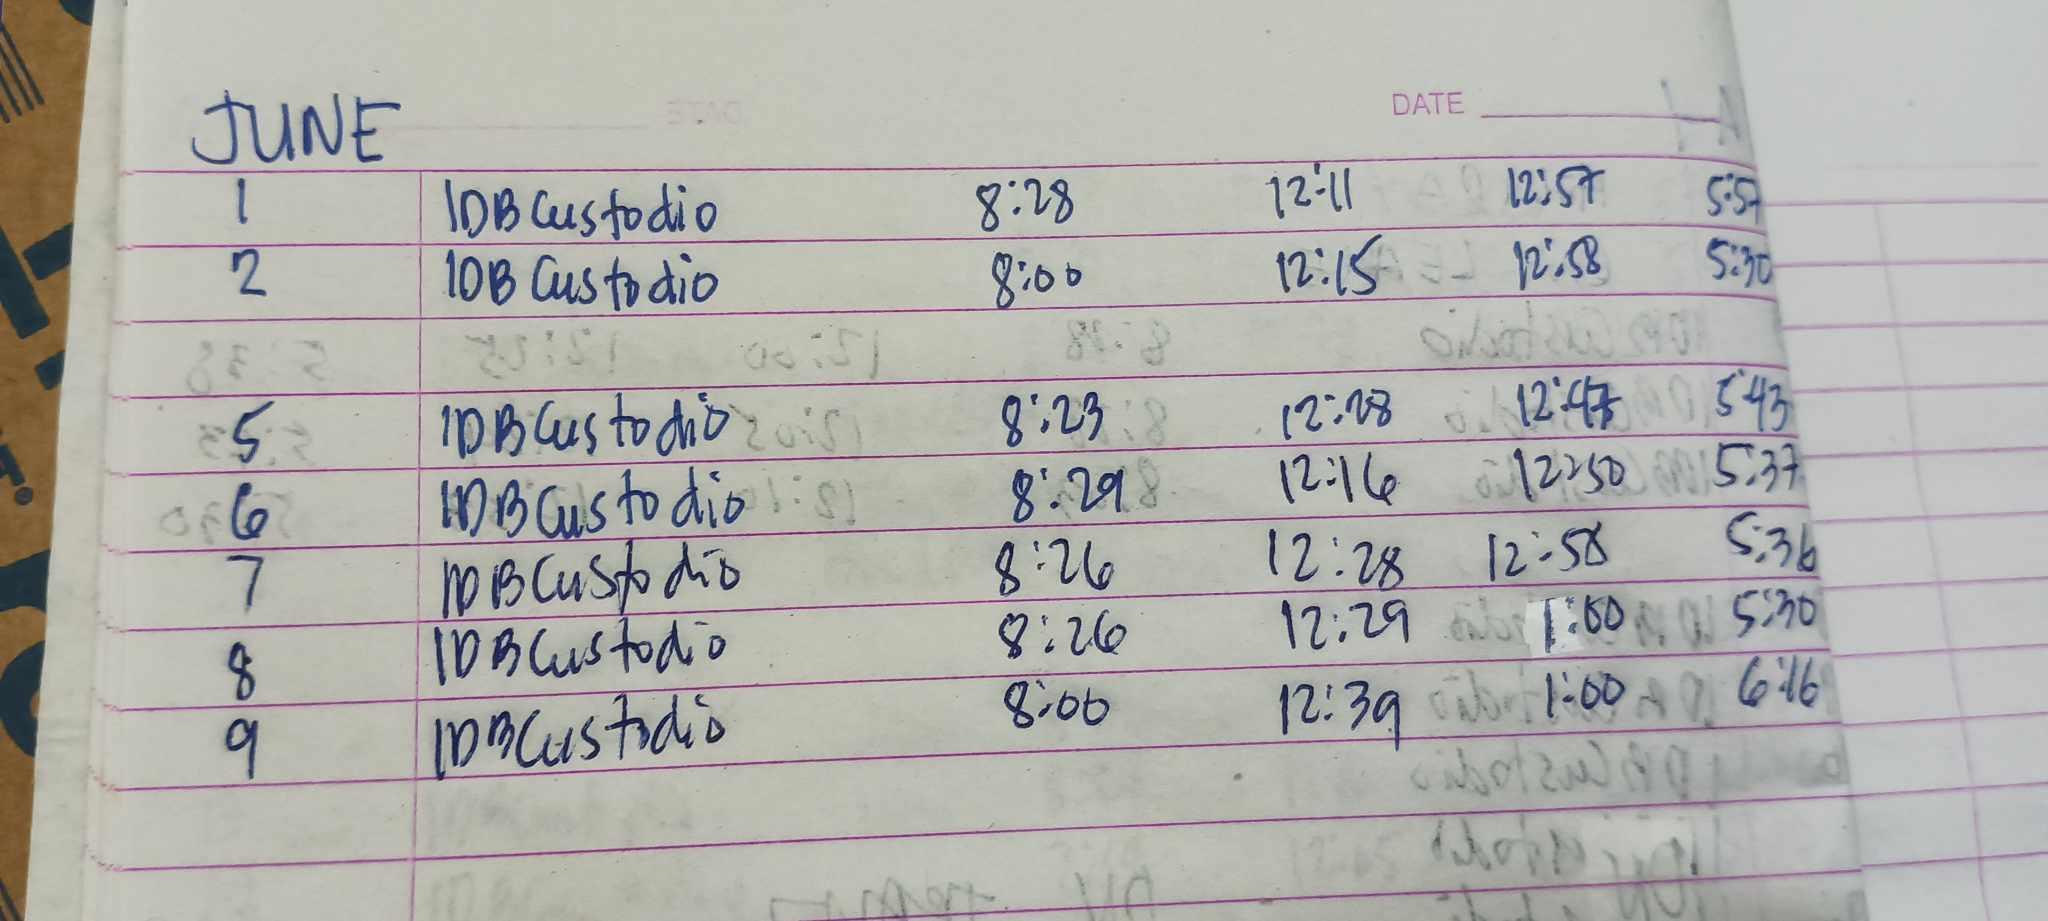 DATE
JUNE
1 IDB Custodio 8:28 12:11 12:57 5:57
2 IDB Custodio 8:00 12:15 12:58 5:30
5 IDB Custodio 8:23 12:28 12:47 5:43
6 IDB Custodio 8:29 12:16 12:50 5:37
7 IDB Custodio 8:26 12:28 12:58 5:36
8 IDB Custodio 8:26 12:29 1:00 5:30
9 IDB Custodio 8:00 12:39 1:00 6:16